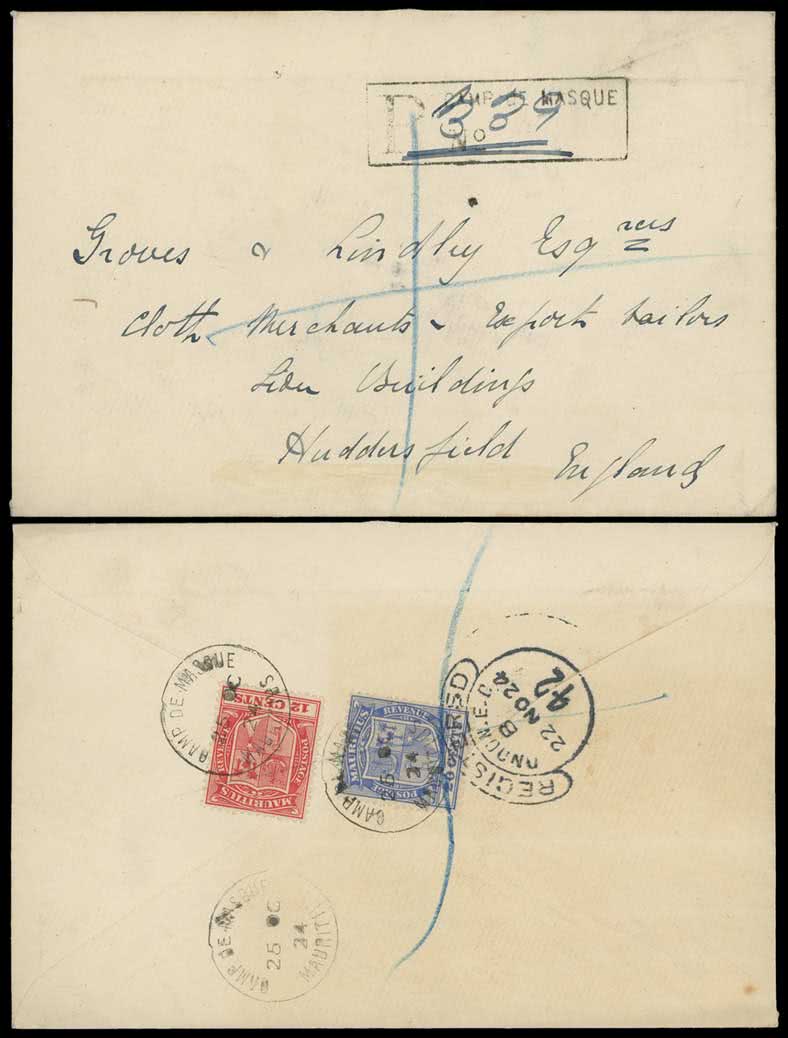 R CAMP DE MASQUE
No 329
Groves & Lindley Esqrs
Cloth Merchants & Export tailors
Lion Buildings
Huddersfield
England
CAMP DE MASQUE
25 OC
24
MAURITIUS
12 CENTS
POSTAGE & REVENUE
MAURITIUS
MAURITIUS
POSTAGE
REVENUE
CENTS
CAMP
25 OC
24
REGISTERED
LONDON E.C.
B
22 NO 24
42
CAMP DE MASQUE
25 OC
24
MAURITI